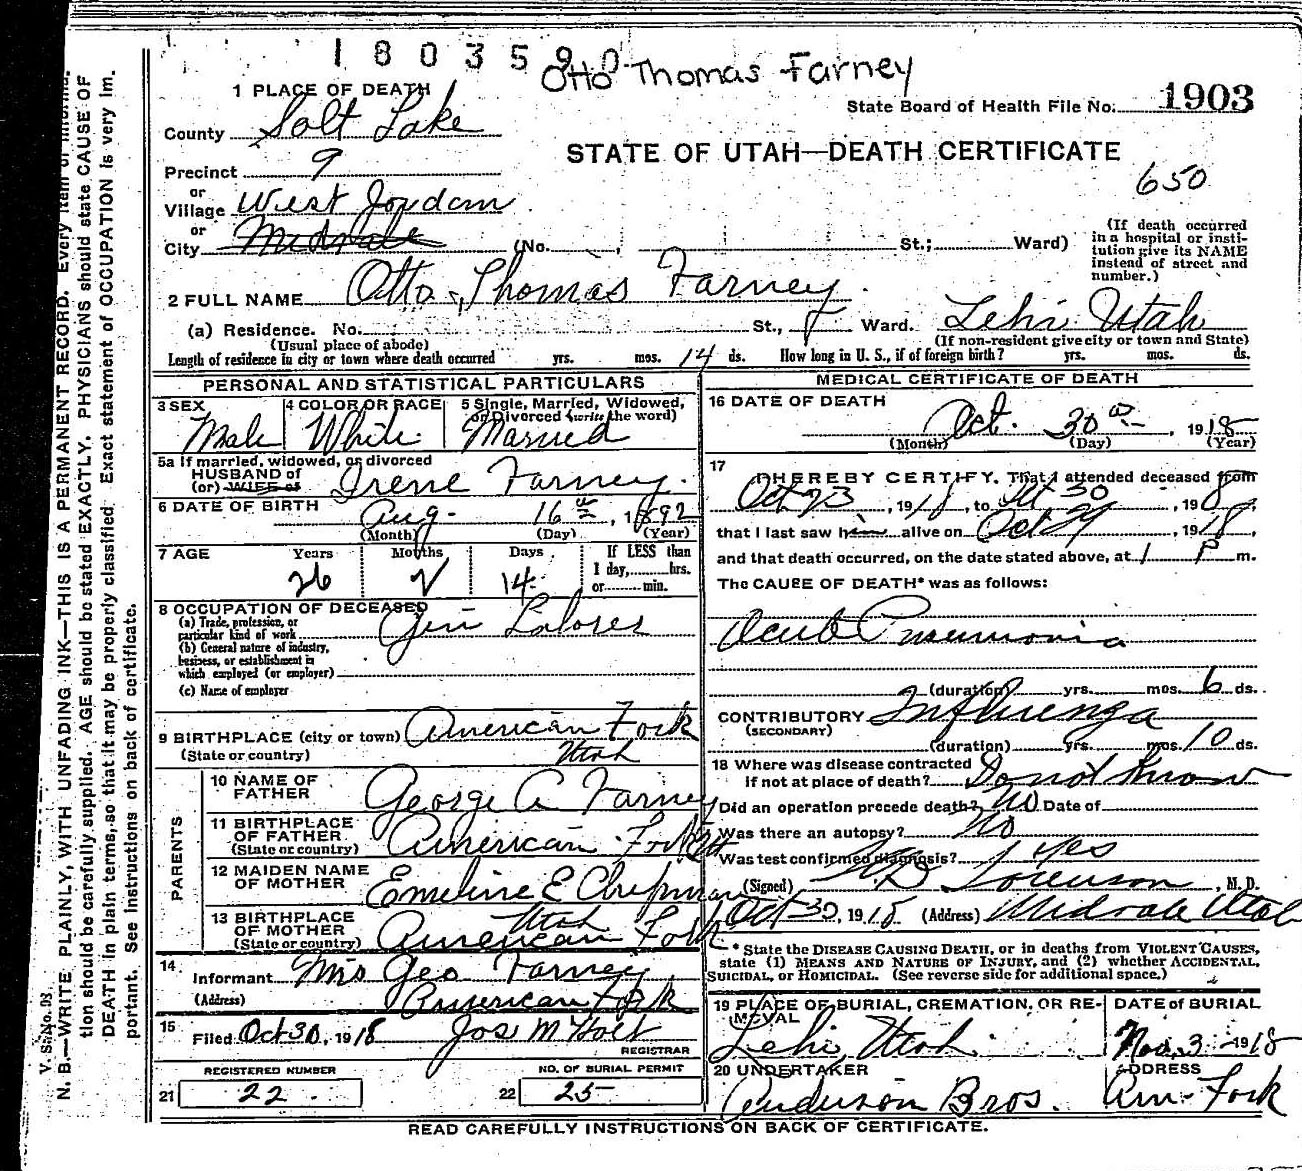 1803590
Otto Thomas Farney
1 PLACE OF DEATH
State Board of Health File No. 1903
County Salt Lake
STATE OF UTAH—DEATH CERTIFICATE
Precinct 9
650
or
Village West Jordan
or
City Midvale (No. , St.; Ward)
(If death occurred in a hospital or insti-
tution give its NAME
instead of street and
number.)
2 FULL NAME Otto Thomas Farney
(a) Residence. No. St., Ward. Lehi Utah
(Usual place of abode) (If non-resident give city or town and State)
Length of residence in city or town where death occurred yrs. mos. 14 ds. How long in U. S., if of foreign birth? yrs. mos. ds.
PERSONAL AND STATISTICAL PARTICULARS
3 SEX 4 COLOR OR RACE 5 Single, Married, Widowed,
or Divorced (write the word)
Male White Married
5a If married, widowed, or divorced
HUSBAND of
(or) WIFE of Irene Farney
6 DATE OF BIRTH Aug. 16 , 1892
(Month) (Day) (Year)
7 AGE Years Months Days If LESS than
1 day, hrs.
or min.
26 2 14
8 OCCUPATION OF DECEASED
(a) Trade, profession, or
particular kind of work Gen Laborer
(b) General nature of industry,
business, or establishment in
which employed (or employer)
(c) Name of employer
9 BIRTHPLACE (city or town) American Fork
(State or country) Utah
PARENTS
10 NAME OF
FATHER George A Farney
11 BIRTHPLACE
OF FATHER American Fork
(State or country)
12 MAIDEN NAME
OF MOTHER Emeline E Chipman
13 BIRTHPLACE
OF MOTHER Utah
(State or country) American Fork
14
Informant Mrs Geo Farney
(Address) American Fork
15
Filed Oct 30, 1918 Jos M Holt
REGISTRAR
REGISTERED NUMBER NO. OF BURIAL PERMIT
21 22 22 25
MEDICAL CERTIFICATE OF DEATH
16 DATE OF DEATH
Oct. 30 , 1918
(Month) (Day) (Year)
17
I HEREBY CERTIFY, That I attended deceased from
Oct 23, 1918, to Oct 30, 1918,
that I last saw him alive on Oct 29, 1918,
and that death occurred, on the date stated above, at 1 P m.
The CAUSE OF DEATH* was as follows:
Acute Pneumonia
(duration) yrs. mos. 6 ds.
CONTRIBUTORY Influenza
(SECONDARY)
(duration) yrs. mos. 10 ds.
18 Where was disease contracted
if not at place of death? Do not know
Did an operation precede death? No Date of
Was there an autopsy? No
Was test confirmed diagnosis? Yes
(Signed) Sorenson, M. D.
Oct 30, 1918 (Address) Midvale Utah
* State the DISEASE CAUSING DEATH, or in deaths from VIOLENT CAUSES,
state (1) MEANS AND NATURE OF INJURY, and (2) whether ACCIDENTAL,
SUICIDAL, or HOMICIDAL. (See reverse side for additional space.)
19 PLACE OF BURIAL, CREMATION, OR RE-
MOVAL
Lehi, Utah
DATE OF BURIAL
Nov. 3 1918
20 UNDERTAKER
Anderson Bros.
ADDRESS
Am. Fork
READ CAREFULLY INSTRUCTIONS ON BACK OF CERTIFICATE.
N. B.—WRITE PLAINLY, WITH UNFADING INK—THIS IS A PERMANENT RECORD. Every item of
tion should be carefully supplied. AGE should be stated EXACTLY. PHYSICIANS should state CAUSE OF
DEATH in plain terms, so that it may be properly classified. Exact statement of OCCUPATION is very im-
portant. See instructions on back of certificate.